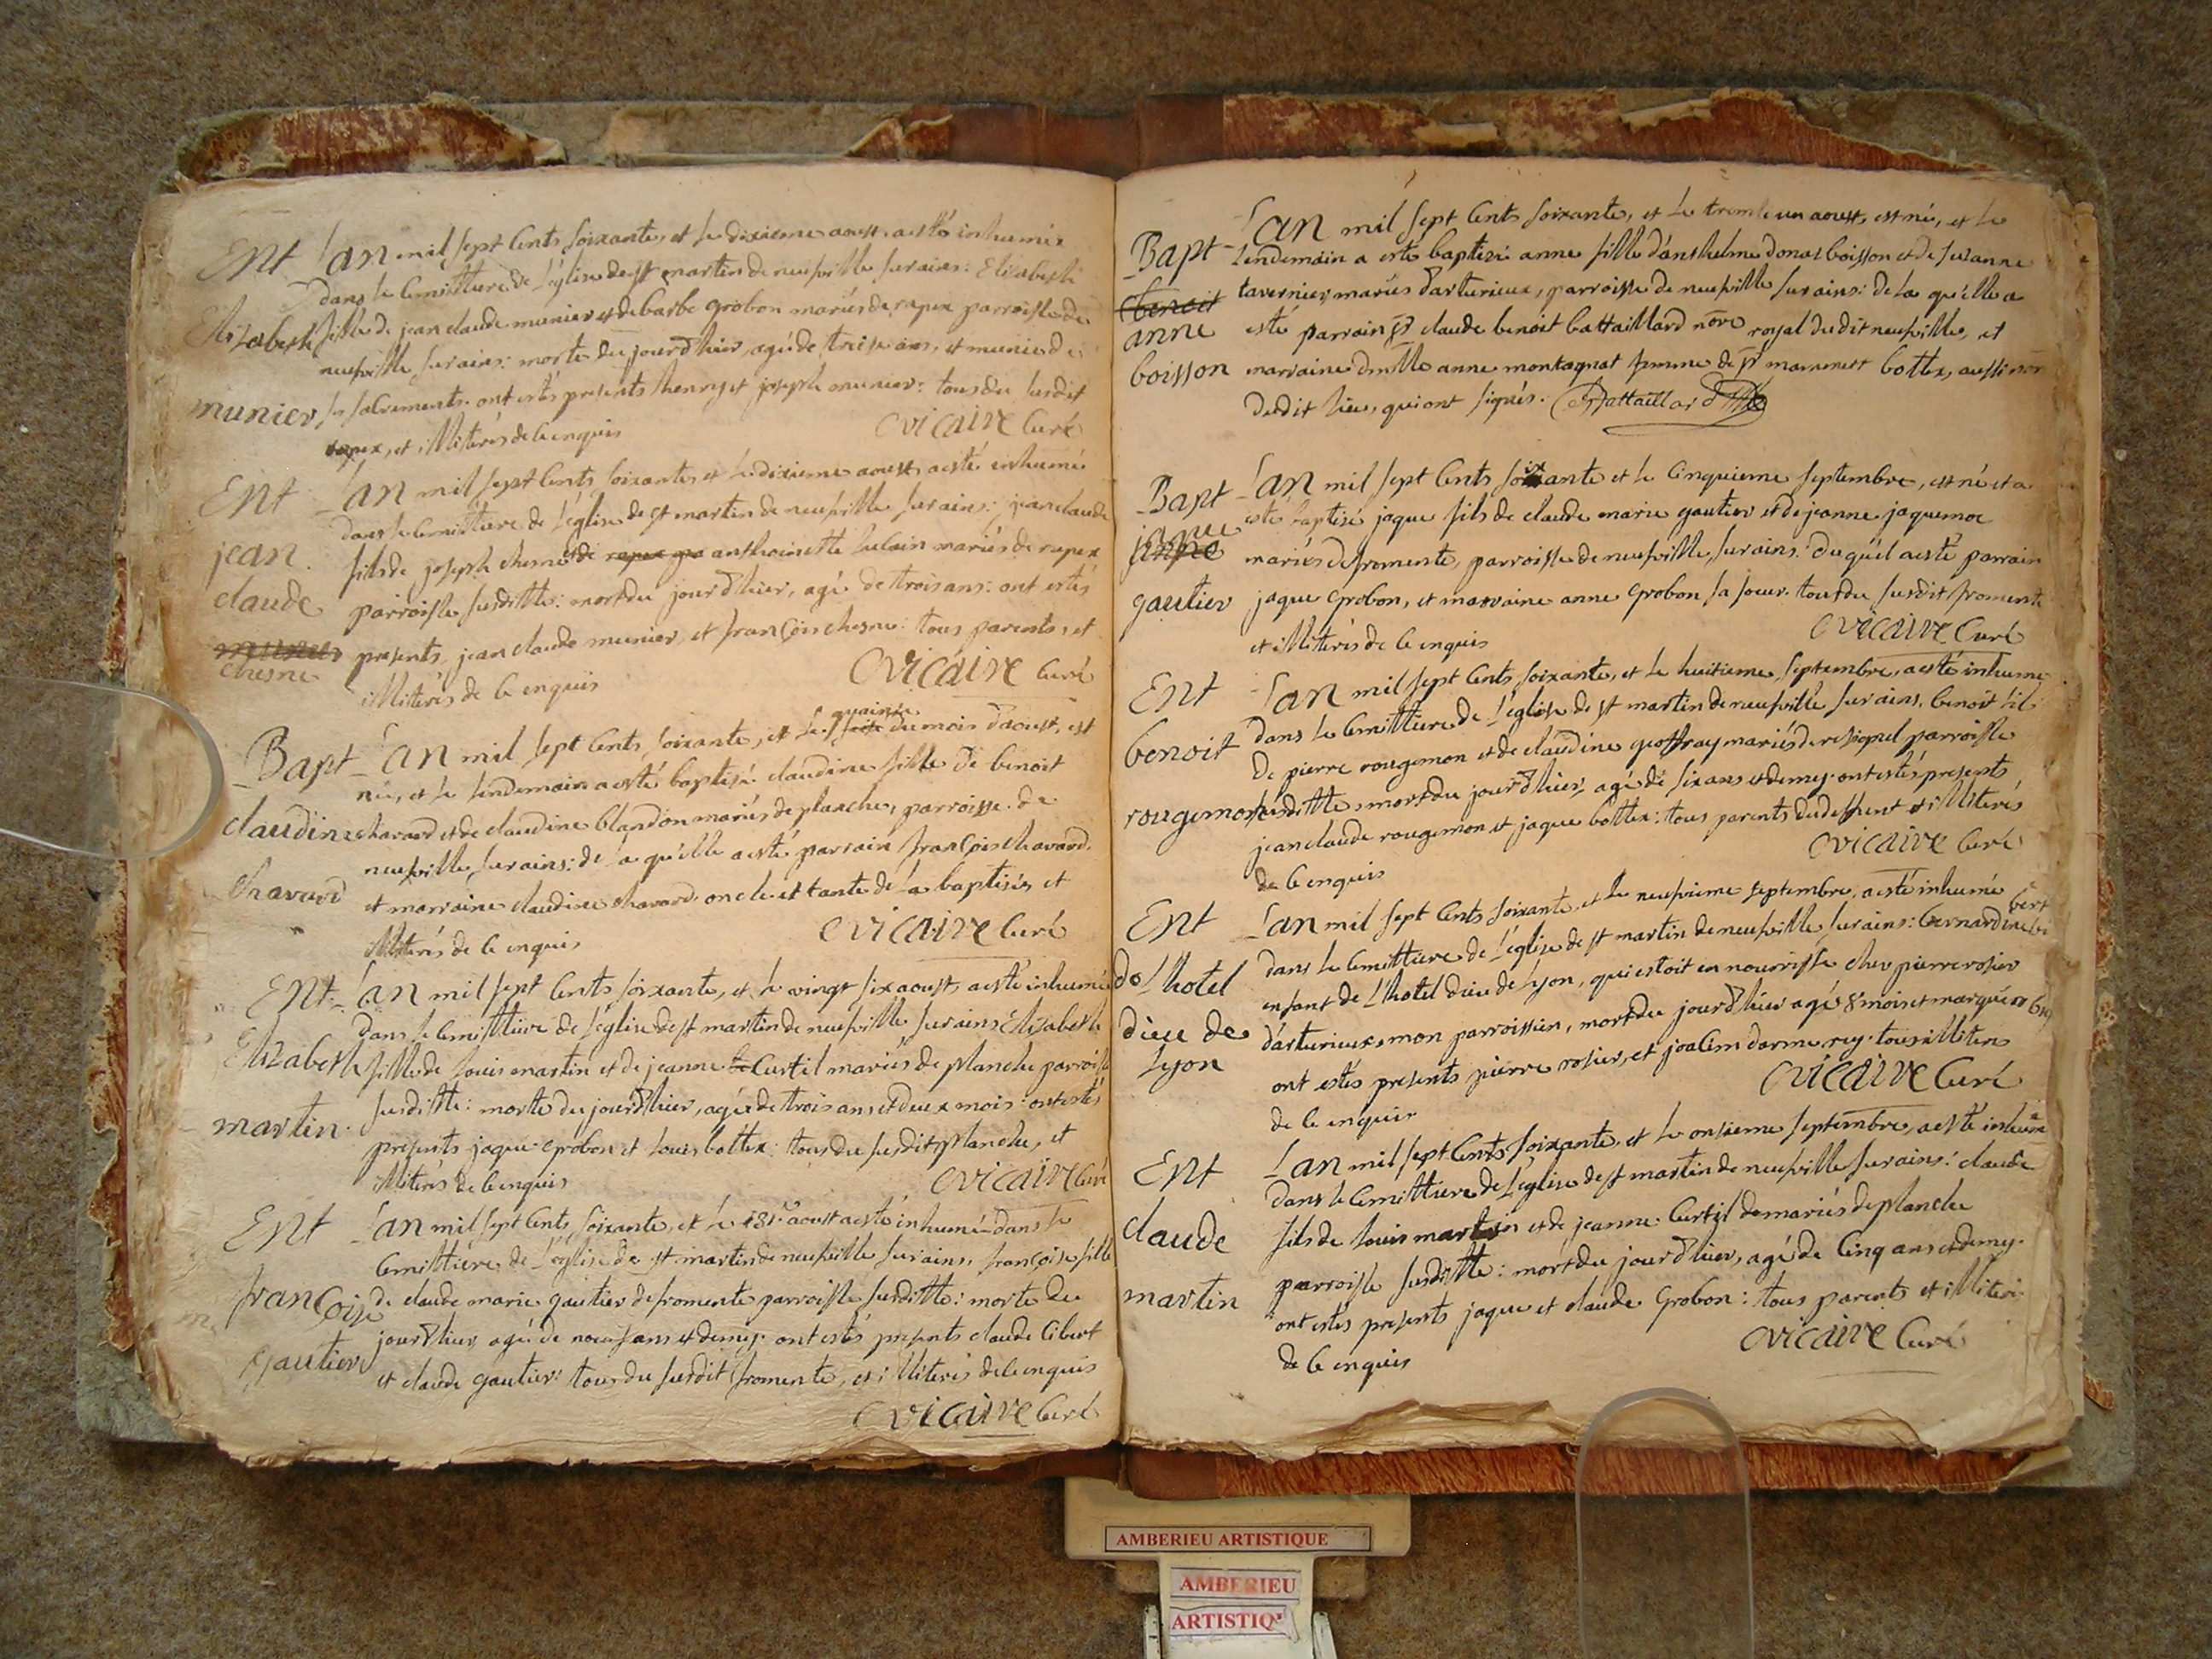 Ent
Elizabeth
munier
L'an mil sept cents soixante, et le dixieme aoust a esté inhumée
dans le cemittiere de l'eglise de st martin de neufville surains: Elizabeth
fille de jean claude munier et de barbe grobon mariés de rapex parroisse de
neufville surains: morte du jour d'hier, agée de treise ans, et munie de
ses sacrements. ont estés presents henry et joseph munier: tous du susdit
rapex, et illiterés de ce enquis
vicaire curé
Ent
jean
claude
munier
chesne
L'an mil sept cents soixante, et le dixieme aoust, a esté inhumé
dans le cemittiere de l'eglise de st martin de neufville surains: jean claude
fils de joseph chesne et de anthoinette mariés de rapex
parroisse susditte: mort du jour d'hier, agé de trois ans: ont estés
presents jean claude munier, et françois chesne: tous parents, et
illiterés de ce enquis
vicaire curé
Bapt
claudine
chavard
L'an mil sept cents soixante, et le quainse du mois d'aoust, est
née, et le lendemain a esté baptisé claudine fille de benoit
chavard et de claudine blandon mariés de planche, parroisse de
neufville surains: de la qu'elle a esté parrain françois chavard
et marraine claudine chavard oncle et tante de la baptisée, et
illiterés de ce enquis
vicaire curé
Ent
Elizabeth
martin
L'an mil sept cents soixante, et le vingt six aoust, a esté inhumée
dans le cemittiere de l'eglise de st martin de neufville surains Elizabeth
fille de louis martin et de jeanne curtil mariés de planche parroisse
susditte: morte du jour d'hier, agée de trois ans et deux mois: ont estés
presents jaque grobon et louis bottex: tous du susdit planche, et
illiterés de ce enquis
vicaire curé
Ent
françoise
gautier
L'an mil sept cents soixante, et le aoust a esté inhumée dans le
cemittiere de l'eglise de st martin de neufville surains, françoise fille
de claude marie gautier de fromente parroisse susditte: morte du
jour d'hier, agée de neuf ans et demy: ont estés presents claude libert
et claude gautier: tous du susdit fromente, et illiterés de ce enquis
vicaire curé
Bapt
benoit
anne
boisson
L'an mil sept cents soixante, et le trente un aoust, est née, et le
lendemain a esté baptisée anne fille d'anthelme donat boisson et de susanne
tavernier mariés d'arturieux, parroisse de neufville surains: de la qu'elle a
esté parrain sr claude benoit battaillard nore royal dudit neufville, et
marraine dmlle anne montagnat femme de sr bottex, aussi nore
dudit lieu, qui ont signés. Battaillard
Bapt
jaque
gautier
L'an mil sept cents soixante et le cinquieme septembre, est né et a
esté baptisé jaque fils de claude marie gautier et de jeanne jaquemoc
mariés de fromente, parroisse de neufville surains: du qu'el a esté parrain
jaque grobon, et marraine anne grobon sa soeur. tous du susdit fromente
et illiterés de ce enquis
vicaire curé
Ent
benoit
rougemont
L'an mil sept cents soixante, et le huitieme septembre, a esté inhumé
dans le cemittiere de l'eglise de st martin de neufville surains, benoit fils
de pierre rougemon et de claudine geoffray mariés de resignel parroisse
susditte: mort du jour d'hier, agé de six ans et demy. ont estés presents
jean claude rougemon et jaque bottex: tous parents du deffunt et illiterés
de ce enquis
vicaire curé
Ent
de l'hotel
dieu de
lyon
L'an mil sept cents soixante, et le neufvieme septembre, a esté inhumé
dans le cemittiere de l'eglise de st martin de neufville surains: bernardine
enfant de l'hotel dieu de lyon, qui estoit en nourrisse chez pierre rosier
d'arturieux, mon parroissien, mort du jour d'hier agé 8 mois et marqué
ont estés presents pierre rosier, et joacim darmerey. tous illiterés
de ce enquis
vicaire curé
Ent
claude
martin
L'an mil sept cents soixante, et le onsieme septembre, a esté inhumé
dans le cemittiere de l'eglise de st martin de neufville surains: claude
fils de louis martin et de jeanne curtil mariés de planche
parroisse susditte: mort du jour d'hier, agé de cinq ans et demy.
ont estés presents jaque et claude grobon: tous parents et illiterés
de ce enquis
vicaire curé
AMBERIEU ARTISTIQUE
AMBERIEU
ARTISTIQ